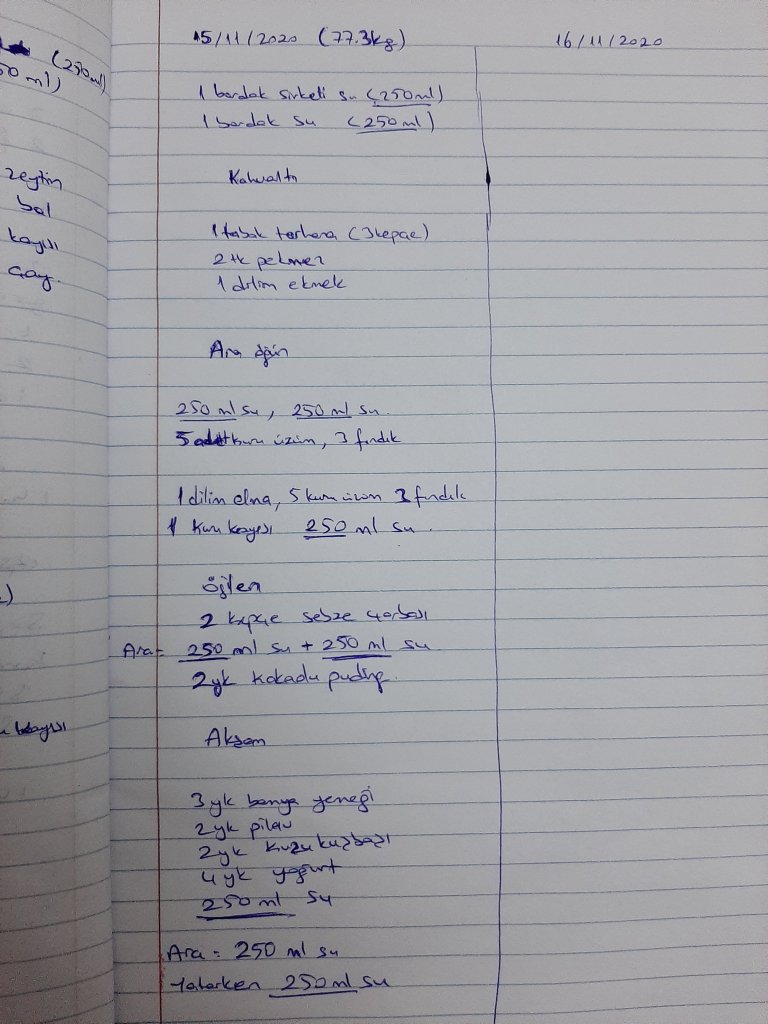 (250ml)
50 ml)
zeytin
bal
kayısı
çay.
kayısı
15/11/2020 (77.3kg)
1 bardak sirkeli su (250ml)
1 bardak su (250ml)
Kahvaltı
1 tabak tarhana (3 kepçe)
2 tk pekmez
1 dilim ekmek
Ara öğün
250 ml su, 250 ml su.
5 adet kuru üzüm, 3 fındık
1 dilim elma, 5 kuru üzüm 3 fındık
1 kuru kayısı 250 ml su.
Öğlen
2 kepçe sebze çorbası
Ara= 250 ml su + 250 ml su
2 yk kakaolu puding.
Akşam
3 yk bamya yemeği
2 yk pilav
2 yk kuzu kuşbaşı
4 yk yoğurt
250 ml su
Ara = 250 ml su
Yatarken 250 ml su
16/11/2020